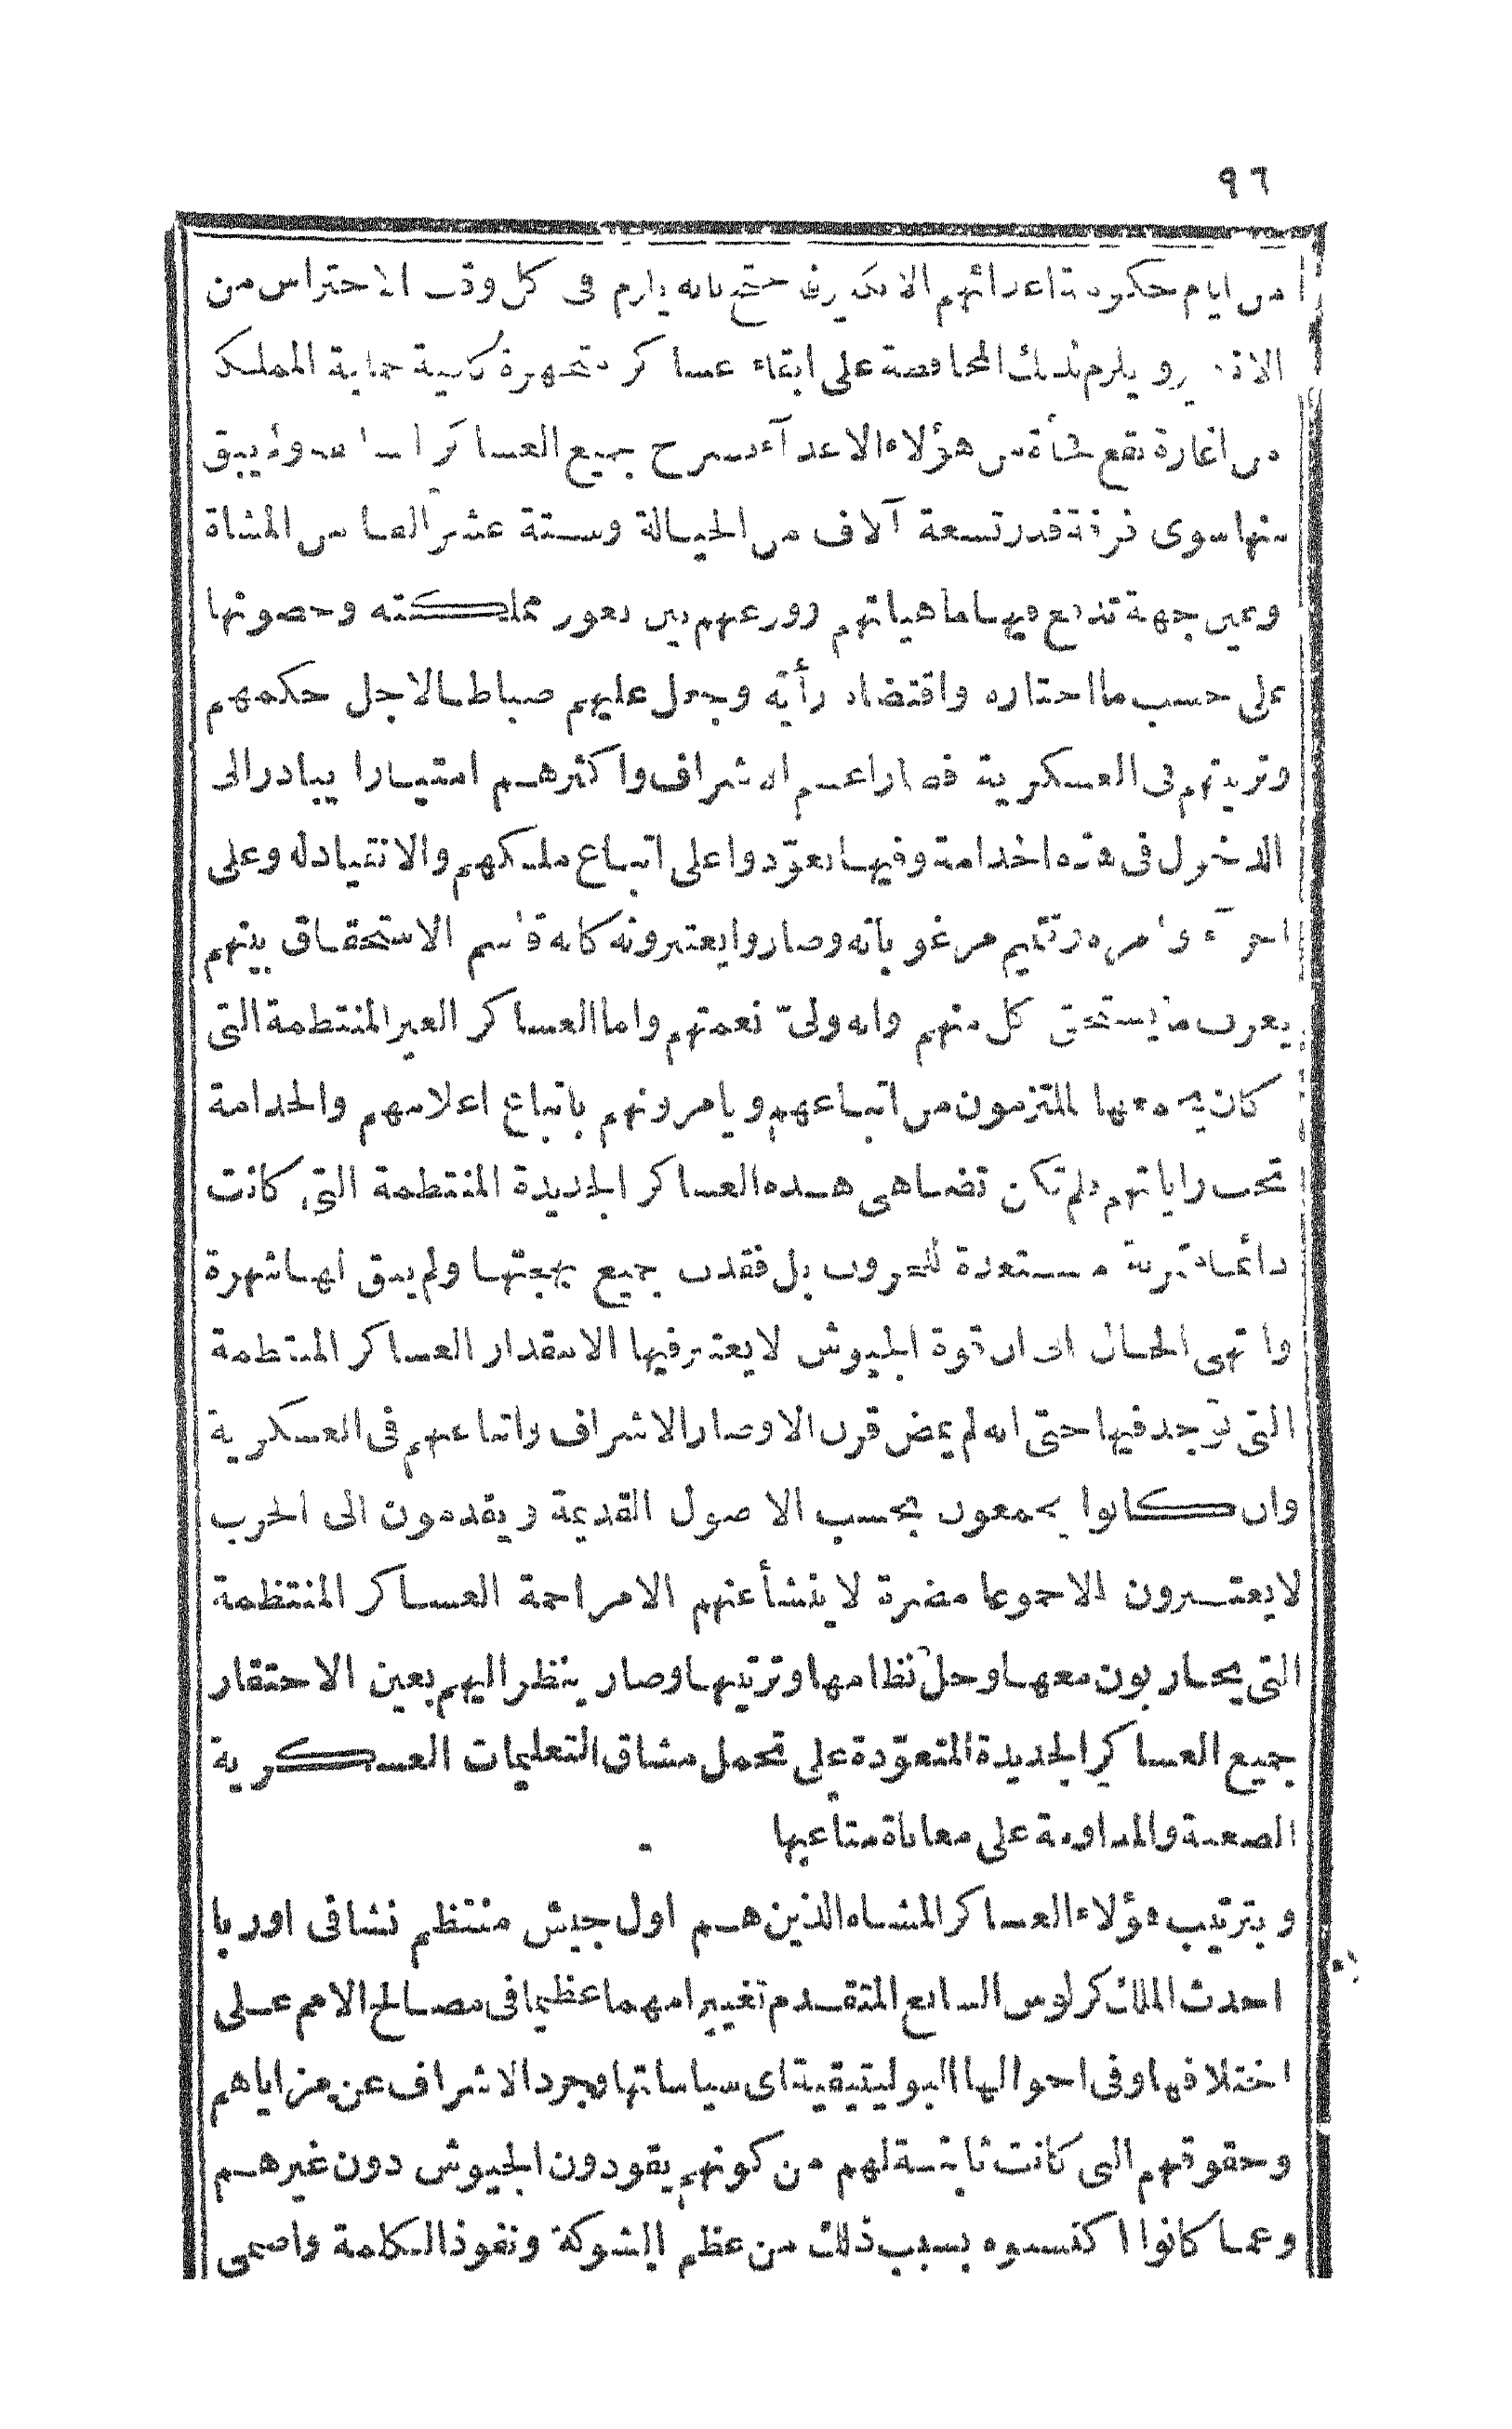 ٩٦
من ايام حكومة اعدائهم الانكليز محتج بانه يلزم في كل وقت الاحتراس من
ويلزم لذلك المحافظة على ابقاء عساكر متجهزة كافية حماية المملكة
من اغارة تقع فجأة من هؤلاء الاعدآء سرح جميع العساكر ولم يبق
منها سوى فرقة قدر تسعة آلاف من الخيالة وستة عشر الفا من المشاة
وعين جهة تدفع فيها ماهياتهم ووزعهم بين ثغور مملكته وحصونها
على حسب ما اختاره واقتضاه رأيه وجعل عليهم ضباطا لاجل حكمهم
وتربيتهم في العسكرية فصار اعظم الاشراف واكثرهم امتيازا يبادر الى
الدخول في هذه الخدامة وفيها تعوّدوا على اتباع ملكهم والانقياد له وعلى
اجرآء اوامره وتتميم مرغوباته وصاروا يعتبرونه كانه قاسم الاستحقاق بينهم
يعرف ما يستحق كل منهم وانه ولىّ نعمتهم واما العساكر الغير المنتظمة التى
كان يجمعها الملتزمون من اتباعهم ويامرونهم باتباع اعلامهم والخدامة
تحت راياتهم ولم تكن تضاهى هذه العساكر الجديدة المنتظمة التى كانت
دائما مستعدة للحروب بل فقدت جميع بهجتها ولم يبق لها شهرة
وانتهى الحال الى ان قوة الجيوش لا يعتبر فيها الا مقدار العساكر المنتظمة
التى توجد فيها حتى انه لم يمض قرن الا وصار الاشراف واتباعهم فى العسكرية
وان كانوا يجمعون بحسب الاصول القديمة ويقدمون الى الحرب
لا يعتبرون الا جموعا مضرة لا ينشأ عنهم الا مزاحمة العساكر المنتظمة
التى يحاربون معها وحلّ نظامها وترتيبها وصار ينظر اليهم بعين الاحتقار
جميع العساكر الجديدة المتعوّدة على تحمل مشاق التعليمات العسكرية
الصعبة والمداومة على معاناة متاعبها
وبترتيب هؤلاء العساكر المشاه الذين هم اول جيش منتظم نشا فى اوربا
احدث الملك كرلوس السابع المتقدم تغييرا مهما عظيما فى مصالح الامم على
اختلافها وفى احوالها البوليتيقية اى سياساتها وجرد الاشراف عن مزاياهم
وحقوقهم التى كانت ثابتة لهم من كونهم يقودون الجيوش دون غيرهم
وعما كانوا اكتسبوه بسبب ذلك من عظم الشوكة ونفوذ الكلمة واضحى